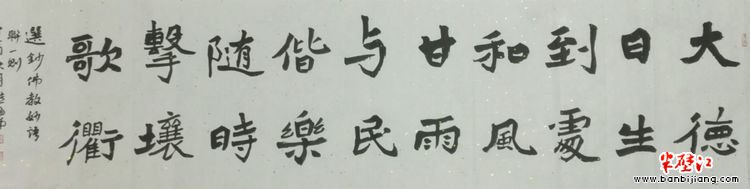 大德
日生
到處
和風
甘雨
与民
偕樂
随時
擊壤
歌衢
選鈔佛教妙語
聯一則
半壁江
www.banbijiang.com